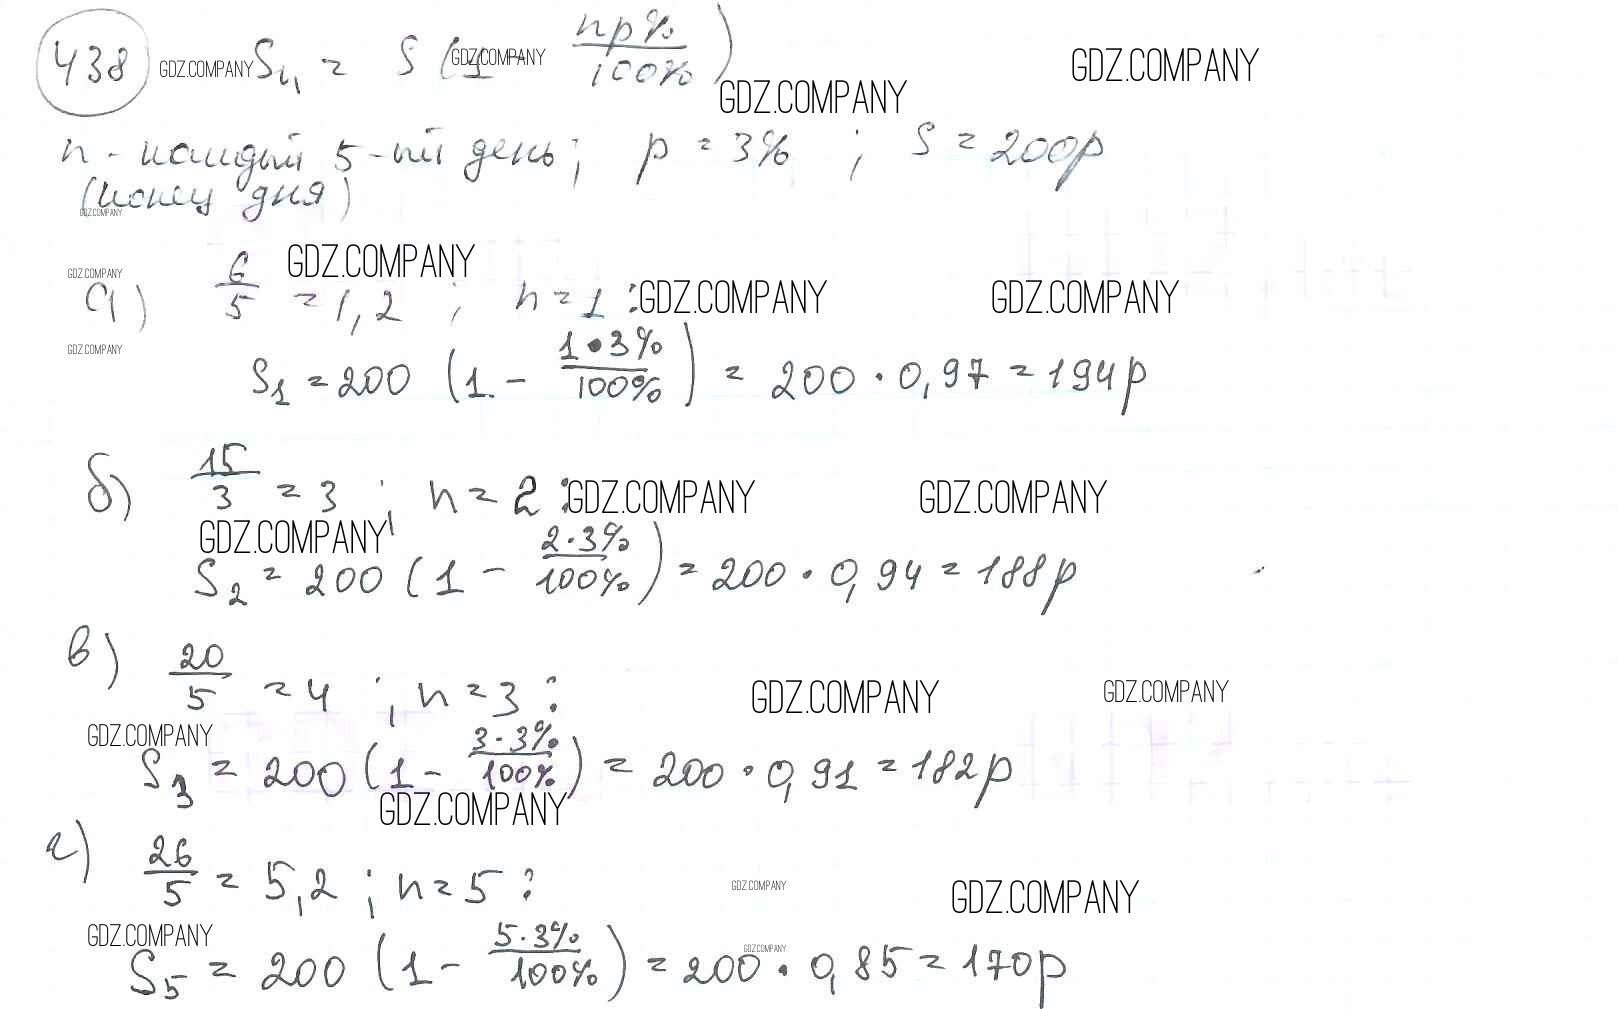 438 GDZ.COMPANY Sₙ = S (1 - np%/100%) GDZ.COMPANY GDZ.COMPANY
GDZ.COMPANY
n - каждый 5-ый день; p = 3% ; S = 200р
(конец дня)
GDZ.COMPANY
GDZ.COMPANY
GDZ.COMPANY
а) 6/5 = 1,2 ; n = 1 : GDZ.COMPANY GDZ.COMPANY
GDZ.COMPANY
S₁ = 200 (1 - 1•3%/100%) = 200 · 0,97 = 194р
б) 15/3 = 3 ; n = 2 : GDZ.COMPANY GDZ.COMPANY
GDZ.COMPANY
S₂ = 200 (1 - 2·3%/100%) = 200 · 0,94 = 188р
в) 20/5 = 4 ; n = 3 : GDZ.COMPANY GDZ.COMPANY
GDZ.COMPANY
S₃ = 200 (1 - 3·3%/100%) = 200 · 0,91 = 182р
GDZ.COMPANY
г) 26/5 = 5,2 ; n = 5 : GDZ.COMPANY GDZ.COMPANY
GDZ.COMPANY GDZ.COMPANY
S₅ = 200 (1 - 5·3%/100%) = 200 · 0,85 = 170р